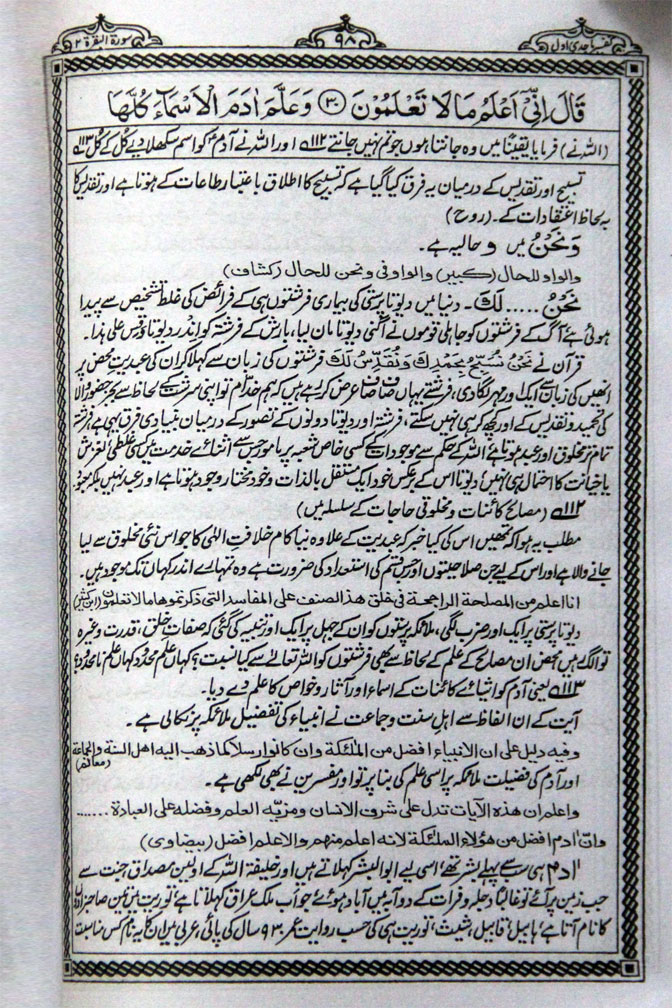 تفسیر ماجدی اول
۹۸
سورة البقرة ۲
قَالَ اِنِّیْۤ اَعْلَمُ مَا لَا تَعْلَمُوْنَ ﴿۳۰﴾ وَعَلَّمَ اٰدَمَ الْاَسْمَآءَ كُلَّهَا
(اللہ نے) فرمایا یقیناً میں وہ جانتا ہوں جو تم نہیں جانتے ۱۱۲ اور اللہ نے آدم کو اسم سکھلا دیے کُل کے کُل ۱۱۳
تسبیح اور تقدیس کے درمیان یہ فرق کیا گیا ہے کہ تسبیح کا اطلاق باعتبار طاعات کے ہوتا ہے اور تقدیس کا
بہ لحاظ اعتقادات کے۔ (روح)
وَنَحْنُ میں و حالیہ ہے۔
والواو للحال (کبیر) والواو فی ونحن للحال (کشاف)
نَحْنُ ..... لَکَ۔ دنیا میں دیوتا پرستی کی بیماری فرشتوں ہی کے فرائض کی غلط تشخیص سے پیدا
ہوئی ہے، آگ کے فرشتوں کو جاہلی قوموں نے اگنی دیوتا مان لیا، بارش کے فرشتہ کو اِندر دیوتا وقس علی ہذا۔
قرآن نے نَحْنُ نُسَبِّحُ بِحَمْدِكَ وَنُقَدِّسُ لَكَ فرشتوں کی زبان سے کہلا کر ان کی عبدیتِ محض پر
انھیں کی زبان سے ایک اور مہر لگا دی، فرشتے یہاں صاف صاف عرض کر رہے ہیں کہ ہم خدّام تو اپنی سرشت کے لحاظ سے بجز حضور والا
کی تحمید و تقدیس کے اور کچھ کر ہی نہیں سکتے، فرشتہ اور دیوتا دونوں کے تصور کے درمیان بنیادی فرق یہی ہے، فرشتہ
تمام تر مخلوق اور عبد ہوتا ہے، اللہ کے حکم سے موجودات کے کسی خاص شعبہ پر مامور جس سے اثنائے خدمت میں کسی غلطی، لغزش
یا خیانت کا احتمال ہی نہیں، دیوتا اس کے برعکس خود ایک مستقل بالذات و خود مختار وجود ہوتا ہے اور عبد نہیں بلکہ معبود
۱۱۲ (مصالح کائنات و مخلوقی حاجات کے سلسلہ میں)
مطلب یہ ہوا کہ تمھیں اس کی کیا خبر کہ عبدیت کے علاوہ نیا کام خلافتِ الٰہی کا جو اس نئی مخلوق سے لیا
جانے والا ہے اور اس کے لیے جن صلاحیتوں اور جس قسم کی استعداد کی ضرورت ہے وہ تمہارے اندر کہاں تک موجود ہیں۔
انا اعلم من المصلحة الراجحة فی خلق هذا الصنف علی المفاسد التی ذکرتموها ما لا تعلمون (ابن کثیر)
دیوتا پرستی پر ایک اور ضرب لگی، ملائکہ پرستوں کو ان کے جہل پر ایک اور تنبیہ کی گئی کہ صفاتِ خلق، قدرت وغیرہ
تو الگ رہیں محض ان مصالح کے علم کے لحاظ سے بھی فرشتوں کو اللہ تعالےٰ سے کیا نسبت؟ کہاں علم محدود کہاں علم نامحدود؟
۱۱۳ یعنی آدم کو اشیائے کائنات کے اسماء اور آثار و خواص کا علم دے دیا۔
آیت کے ان الفاظ سے اہلِ سنت و جماعت نے انبیاء کی تفضیل ملائکہ پر نکالی ہے۔
وفیه دلیل علی ان الانبیاء افضل من الملٰئکة وان کانوا رسلا کما ذهب الیه اهل السنة والجماعة (معالم)
اور آدم کی فضیلت ملائکہ پر اسی علم کی بنا پر تو اور مفسرین نے بھی لکھی ہے۔
واعلم ان هذه الآیات تدل علی شرف الانسان ومزیّة العلم وفضله علی العبادة ........
وانّ اٰدم افضل من هؤلاء الملٰئکة لانه اعلم منهم والاعلم افضل (بیضاوی)
اٰدم ہی سب سے پہلے بشر تھے، اسی لیے ابو البشر کہلاتے ہیں اور خلیفۃ اللہ کے اولین مصداق جنت سے
جب زمین پر آئے تو غالباً دجلہ و فرات کے دوآبہ میں آباد ہوئے جو اب ملک عراق کہلاتا ہے، توریت میں تین صاحبزادوں
کا نام آتا ہے، ہابیل، قابیل، شیث، توریت ہی کی حسب روایت عمر ۹۳۰ سال کی پائی، عربی میں ان کا یہ نام کس مناسبت